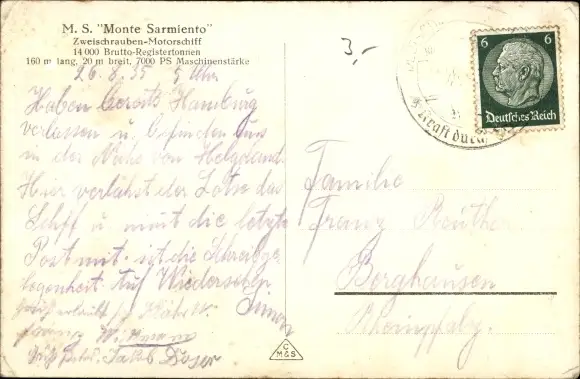 M. S. "Monte Sarmiento"
Zweischrauben-Motorschiff
14 000 Brutto-Registertonnen
160 m lang, 20 m breit, 7000 PS Maschinenstärke
26. 8. 35 5 Uhr
Haben bereits Hamburg
verlassen u. befinden uns
in der Nähe von Helgoland.
Hier verläßt der Lotse das
Schiff u. nimt die letzte
Post mit. ist die Schreibge
legenheit. Auf Wiedersehen
Jakob
3,-
6 6
Deutsches Reich
Kraft durch
Familie
Franz Reuther
Berghausen
Rheinpfalz.
C
M&S